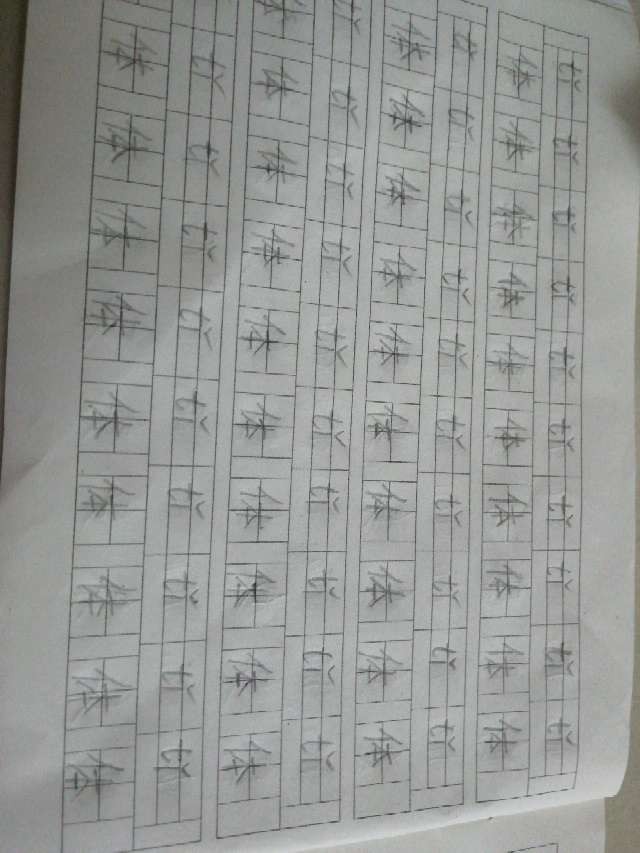 tǐ tǐ tǐ tǐ tǐ tǐ tǐ tǐ tǐ tǐ
体 体 体 体 体 体 体 体 体 体
tǐ tǐ tǐ tǐ tǐ tǐ tǐ tǐ tǐ tǐ
体 体 体 体 体 体 体 体 体 体
tǐ tǐ tǐ tǐ tǐ tǐ tǐ tǐ tǐ tǐ
体 体 体 体 体 体 体 体 体 体
tǐ tǐ tǐ tǐ tǐ tǐ tǐ tǐ tǐ
体 体 体 体 体 体 体 体 体